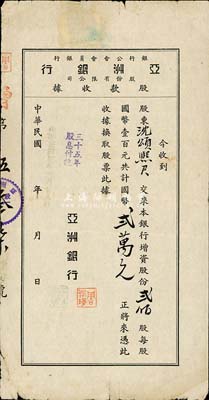 銀行公會會員銀行
股份有限公司
亞洲銀行
股款收據
今收到
股東沈頌熙君 交來本銀行增資股份貳佰股每股
國幣壹百元共計國幣貳萬元正將來憑此
收據換取股票此據
亞洲銀行
三十五年
股息付訖
中華民國 年 月 日
第 伍 號